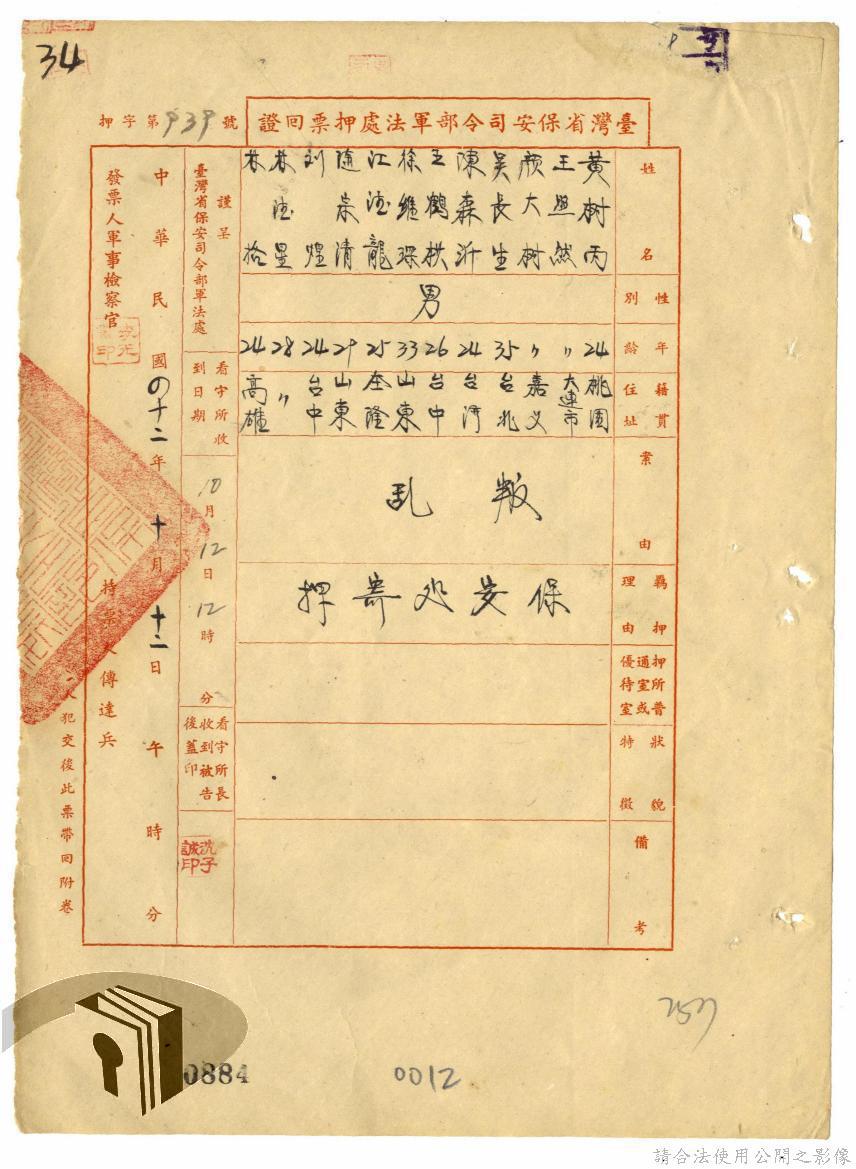 34
臺灣省保安司令部軍法處押票回證
押字第939號
姓名
黃树丙
王照然
顏大树
吳長生
陳森沂
王鶴栱
徐維琛
江德龍
隨崇清
刘煌
林德星
林拾
性別
男
年齡
24
〃
〃
35
24
26
33
25
29
24
28
24
籍貫住址
桃園
大連市
嘉义
台北
台湾
台中
山東
基隆
山東
台中
〃
高雄
案由
叛乱
羈押理由
保安处寄押
押所普通室或優待室
狀貌特徵
備考
謹呈
臺灣省保安司令部軍法處
看守所收到日期
10月12日12時 分
看守所長收到被告後蓋印
沈子誠印
中華民國四十二年十月十二日 午 時 分
發票人軍事檢察官
持票人傳達兵
人犯交後此票帶回附卷
257
0884
0012
請合法使用公開之影像